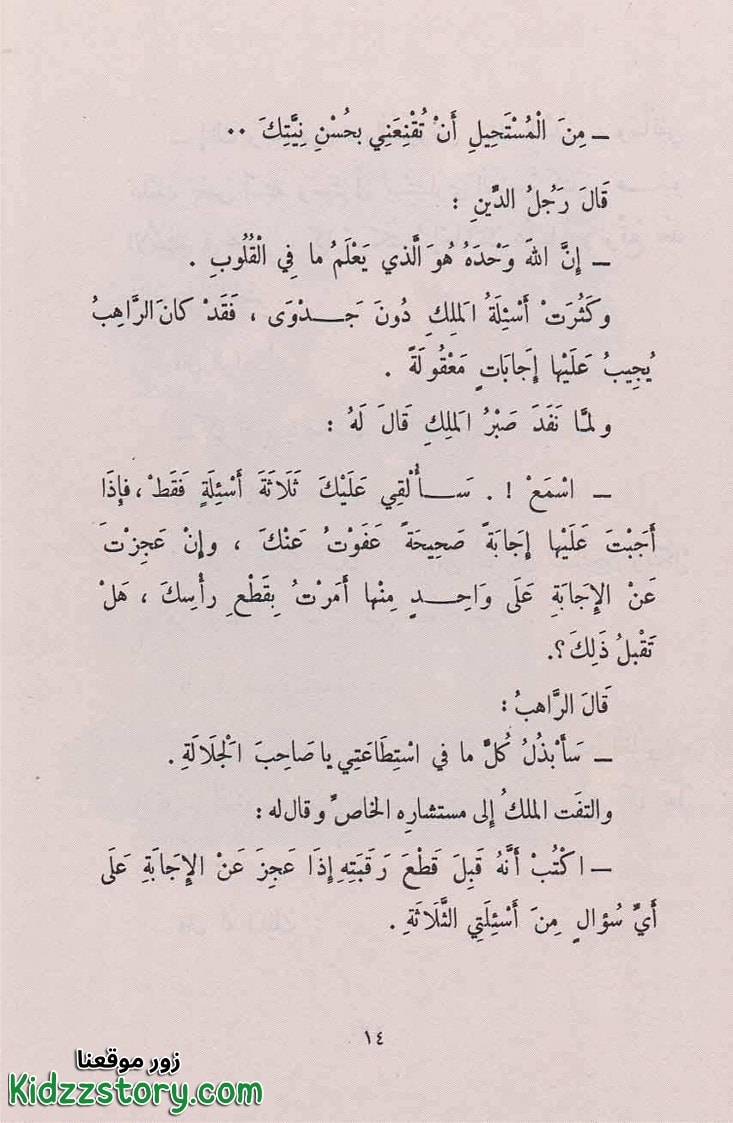 ـ مِنَ الْمُسْتَحِيلِ أَنْ تُقْنِعَنِي بِحُسْنِ نِيَّتِكَ ..
قَالَ رَجُلُ الدِّينِ :
ـ إِنَّ اللهَ وَحْدَهُ هُوَ الَّذي يَعْلَمُ ما فِي الْقُلُوبِ .
وكَثُرَتْ أَسْئِلَةُ المَلِكِ دُونَ جَـــدْوَى ، فَقَدْ كانَ الرَّاهِبُ
يُجِيبُ عَلَيْها إِجَابَاتٍ مَعْقُولَةً .
ولمَّا نَفَدَ صَبْرُ المَلِكِ قَالَ لَهُ :
ـ اسْمَعْ ! . سَـــأُلْقِي عَلَيْكَ ثَلَاثَةَ أَسْئِلَةٍ فَقَطْ ، فإِذَا
أَجَبْتَ عَلَيْها إِجَابَةً صَحِيحَةً عَفَوْتُ عَنْكَ ، وإِنْ عَجِزْتَ
عَنْ الإِجَابَةِ عَلَى وَاحِـــدٍ مِنْها أَمَرْتُ بِقَطْعِ رأْسِكَ ، هَلْ
تَقْبلُ ذَلِكَ ؟.
قَالَ الرَّاهبُ :
ـ سَأَبْذُلُ كُلَّ ما في اسْتِطَاعَتِي يا صَاحِبَ الْجَلَالَةِ .
والتفَت الملكُ إلى مستشارِه الخاصِّ وقال له :
ـ اكْتُبْ أَنَّهُ قَبِلَ قَطْعَ رَقَبَتِهِ إِذَا عَجِزَ عَنْ الإِجَابَةِ عَلَى
أَيِّ سُؤالٍ مِنَ أَسْئِلَتِي الثَّلَاثَةِ .
١٤
زور موقعنا
Kidzzstory.com